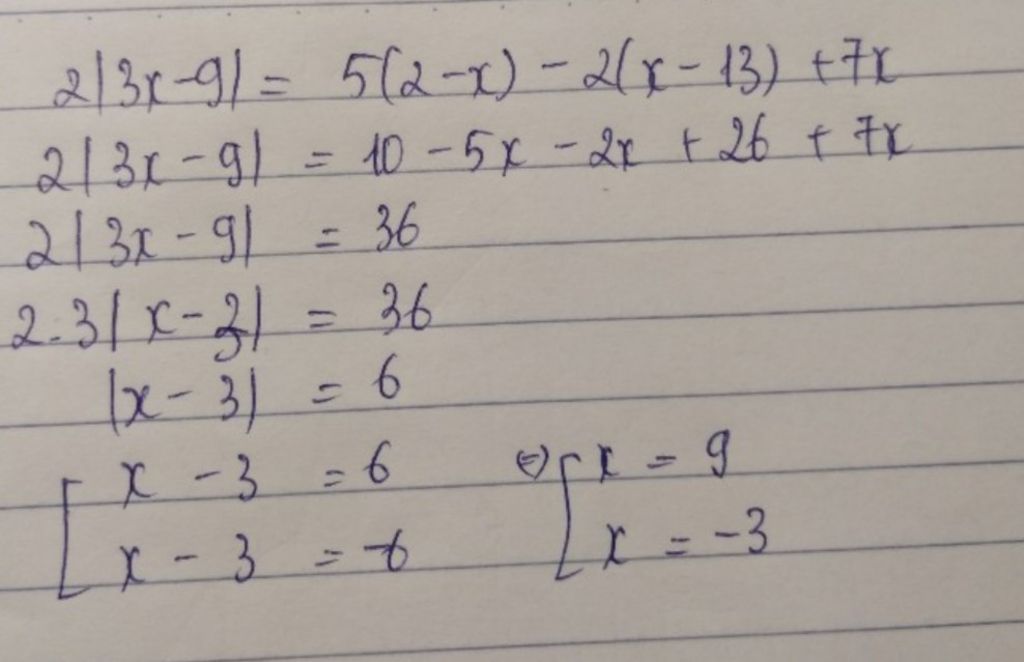 2|3x-9| = 5(2-x) - 2(x-13) + 7x
2|3x-9| = 10 - 5x - 2x + 26 + 7x
2|3x-9| = 36
2.3|x-3| = 36
|x-3| = 6
[ x - 3 = 6 ⇔ [ x = 9
x - 3 = -6 x = -3